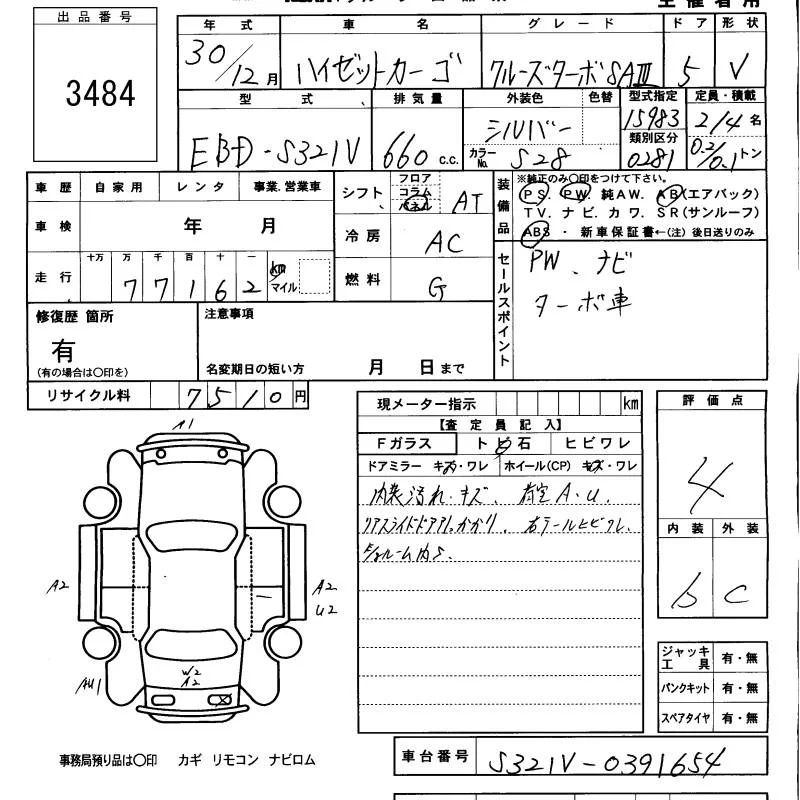 出品番号
3484
年式 車名 グレード ドア 形状
30/12月 ハイゼットカーゴ クルーズターボSAⅢ 5 V
型式 排気量 外装色 色替 型式指定 定員・積載
EBD-S321V 660 c.c. シルバー 15983 2/4名
カラーNo. S28 類別区分 0281 0.2/0.1トン
車歴 自家用 レンタ 事業.営業車
車検 年 月
走行 十万 万 千 百 十 一 km マイル
77162
シフト フロア コラム パネル AT
冷房 AC
燃料 G
装備品
※純正のみ〇印をつけて下さい。
PS. PW. 純AW. AB(エアバック)
TV. ナビ. カワ. SR(サンルーフ)
ABS ・ 新車保証書←(注) 後日送りのみ
セールスポイント
PW、ナビ
ターボ車
修復歴 箇所
有
(有の場合は〇印を)
注意事項
名変期日の短い方 月 日まで
リサイクル料 7510円
現メーター指示 km
【査定員記入】
Fガラス トビ石 ヒビワレ
ドアミラー キズ・ワレ ホイール(CP) キズ・ワレ
内装汚れ・キズ、荷室A・U.
リアスライドドア 右テールヒビワレ、
評価点
4
内装 外装
b C
A1
A2
A2
U2
AU1
W2
A2
ジャッキ工具 有・無
パンクキット 有・無
スペアタイヤ 有・無
事務局預り品は〇印 カギ リモコン ナビロム
車台番号 S321V-0391654